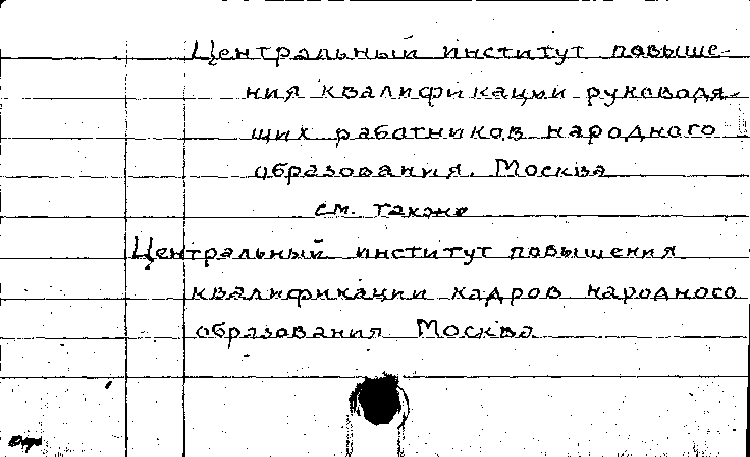 Центральный институт повыше-
ния квалификации руководя-
щих работников народного
образования. Москва
см. также
Центральный институт повышения
квалификации кадров народного
образования Москва